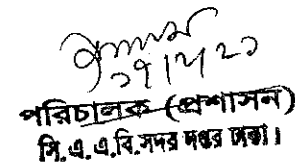 ২৭/৭/২১
পরিচালক (প্রশাসন)
সি.এ.এ.বি.সদর দপ্তর ঢাকা।